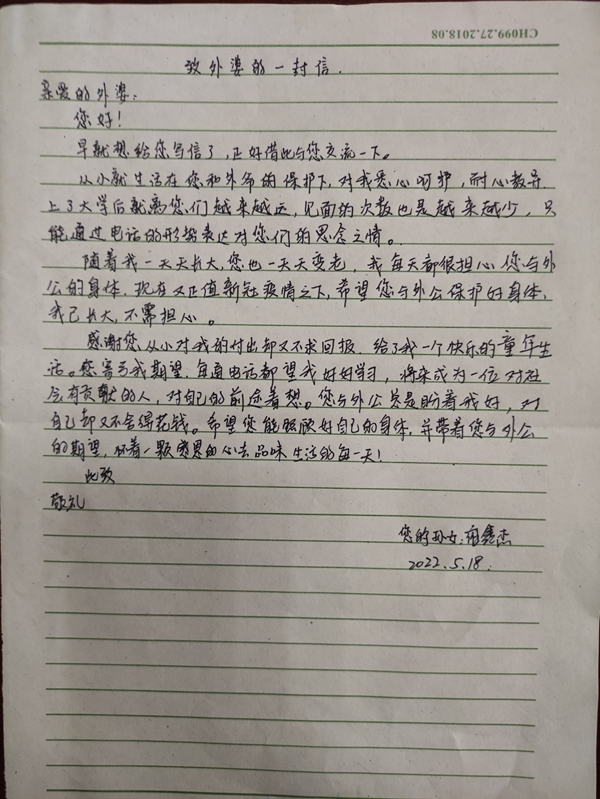 CH099.27.2018.08
致外婆的一封信.
亲爱的外婆:
您好!
早就想给您写信了,正好借此与您交流一下。
从小就生活在您和外公的保护下,对我悉心呵护,耐心教导.
上了大学后就离您们越来越远,见面的次数也是越来越少,只
能通过电话的形势表达对您们的思念之情。
随着我一天天长大,您也一天天变老,我每天都很担心您与外
公的身体,现在又正值新冠疫情之下,希望您与外公保护好身体,
我已长大,不需担心。
感谢您从小对我的付出却又不求回报,给了我一个快乐的童年生
活。您寄予我期望,每通电话都望我好好学习,将来成为一位对社
会有贡献的人,对自己的前途着想。您与外公总是盼着我好,对
自己却又不舍得花钱。希望您能照顾好自己的身体,并带着您与外公
的期望,怀着一颗感恩的心去品味生活的每一天!
此致
敬礼
您的孙女:鑫杰
2022.5.18.